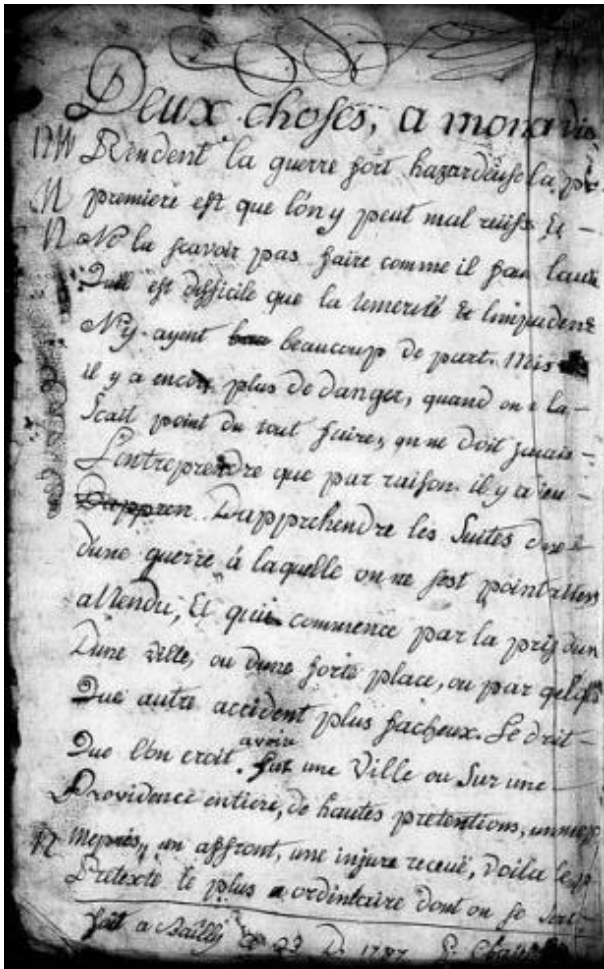 Deux choses, a mon avis
Rendent la guerre fort hazardeuse la pr
premiere est que l'on y peut mal reüssir Et -
Ne la scavoir pas faire comme il faut
Quil est difficile que la temerité & limpudence
N'y ayent beaucoup de part. Mis
il y a encore plus de danger, quand on la -
Scait point du tout faire, on ne doit jamais -
L'entreprendre que par raison. il y a jeu -
Dappren Dapprehendre les Suites dune
d'une guerre á laquelle on ne sest point attens
attendu, Et qui commence par la prise dun
Dune ville, ou dune forte place, ou par quelques
Que autre accident plus facheux. Le droit -
Que l'on croit avoir sur une Ville ou Sur une
Providence entiere, de hautes pretentions, un mep
mepris, un affront, une injure receuë, voila les
Pretexte le plus ordintaire dont on se sert
fait a Bailly Le 23 D. 1787